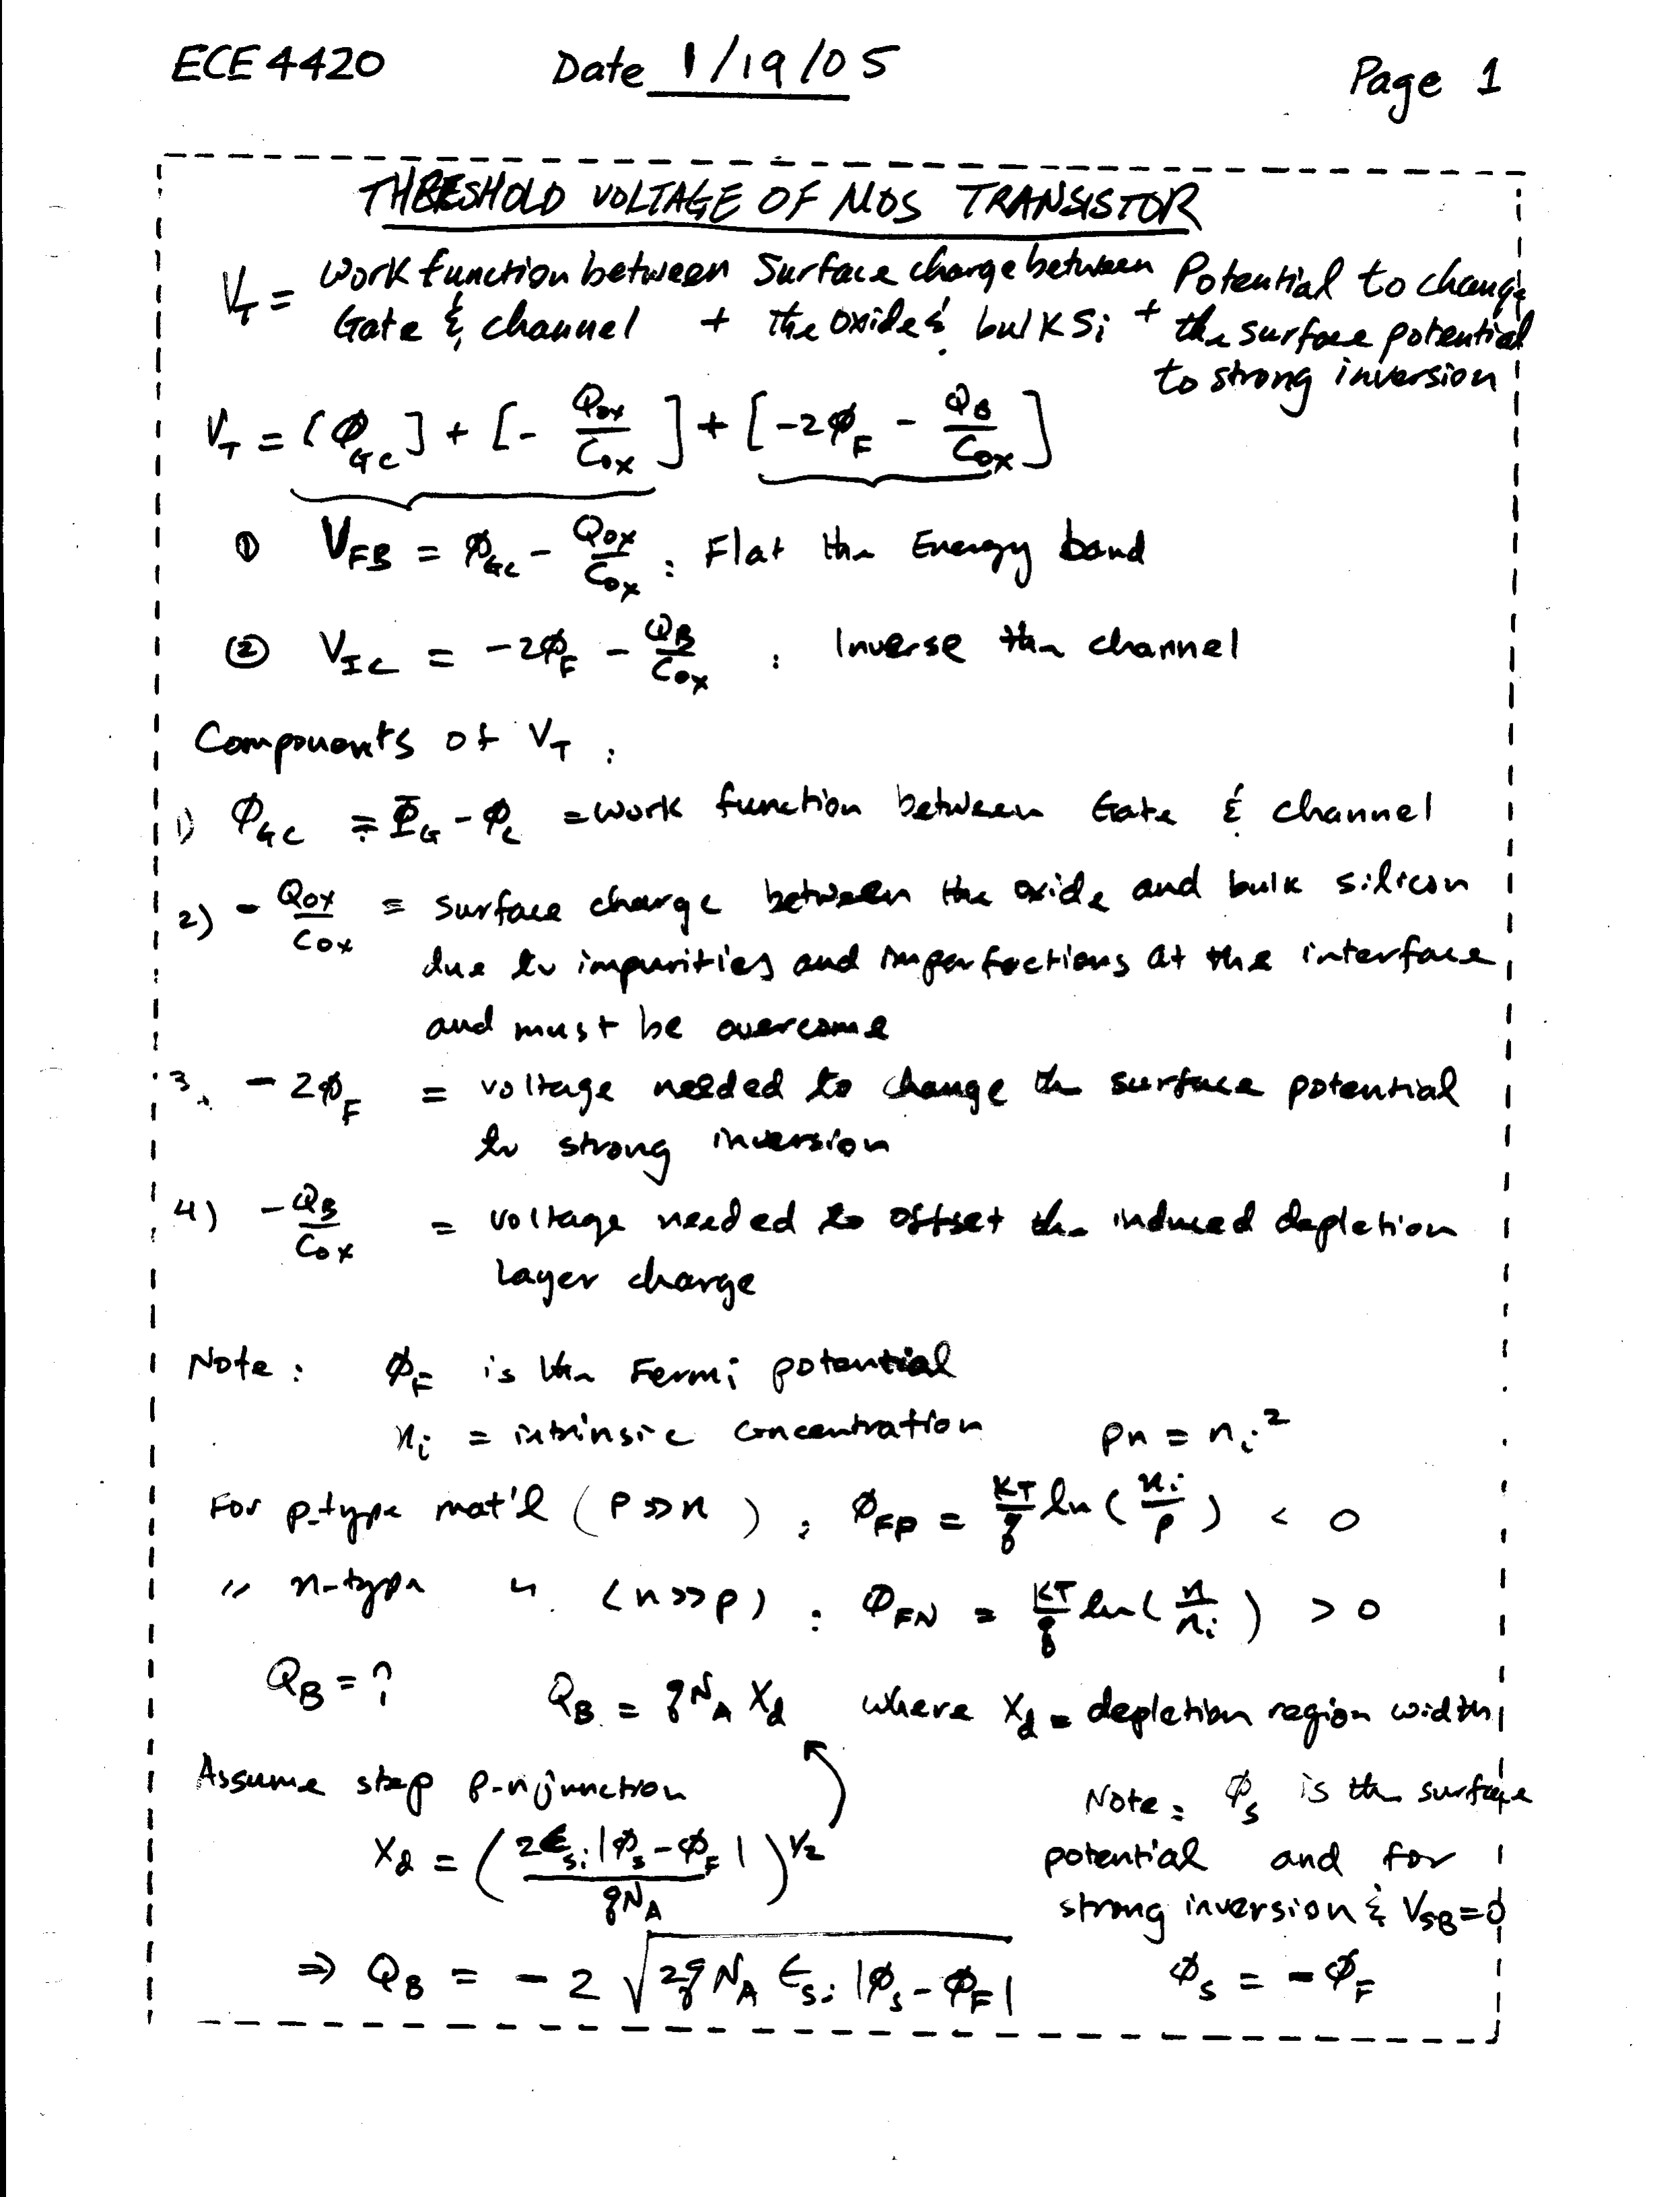 ECE 4420 Date 1/19/05 Page 1
THRESHOLD VOLTAGE OF MOS TRANSISTOR
V_T = Work function between Gate & channel + Surface charge between the oxide & bulk Si + Potential to change the surface potential to strong inversion
V_T = [Φ_GC] + [- Q_ox/C_ox] + [-2Φ_F - Q_B/C_ox]
① V_FB = Φ_GC - Q_ox/C_ox : Flat the Energy band
② V_IC = -2Φ_F - Q_B/C_ox : Inverse the channel
Components of V_T :
1) Φ_GC = Φ_G - Φ_C = work function between Gate & channel
2) - Q_ox/C_ox = surface charge between the oxide and bulk silicon
due to impurities and imperfections at the interface
and must be overcome
3. -2Φ_F = voltage needed to change the surface potential
to strong inversion
4) - Q_B/C_ox = voltage needed to offset the induced depletion
layer charge
Note : Φ_F is the Fermi potential
n_i = intrinsic concentration pn = n_i²
For p-type mat'l (p >> n) : Φ_FP = KT/q ln (n_i/p) < 0
〃 n-type 〃 (n >> p) : Φ_FN = KT/q ln (n/n_i) > 0
Q_B = ? Q_B = qN_A X_d where X_d = depletion region width
Assume step p-n junction
X_d = (2ε_si |Φ_s - Φ_F| / qN_A)^1/2
Note : Φ_s is the surface
potential and for
strong inversion & V_SB = 0
⇒ Q_B = - 2 √(2qN_A ε_si |Φ_s - Φ_F|) Φ_s = - Φ_F